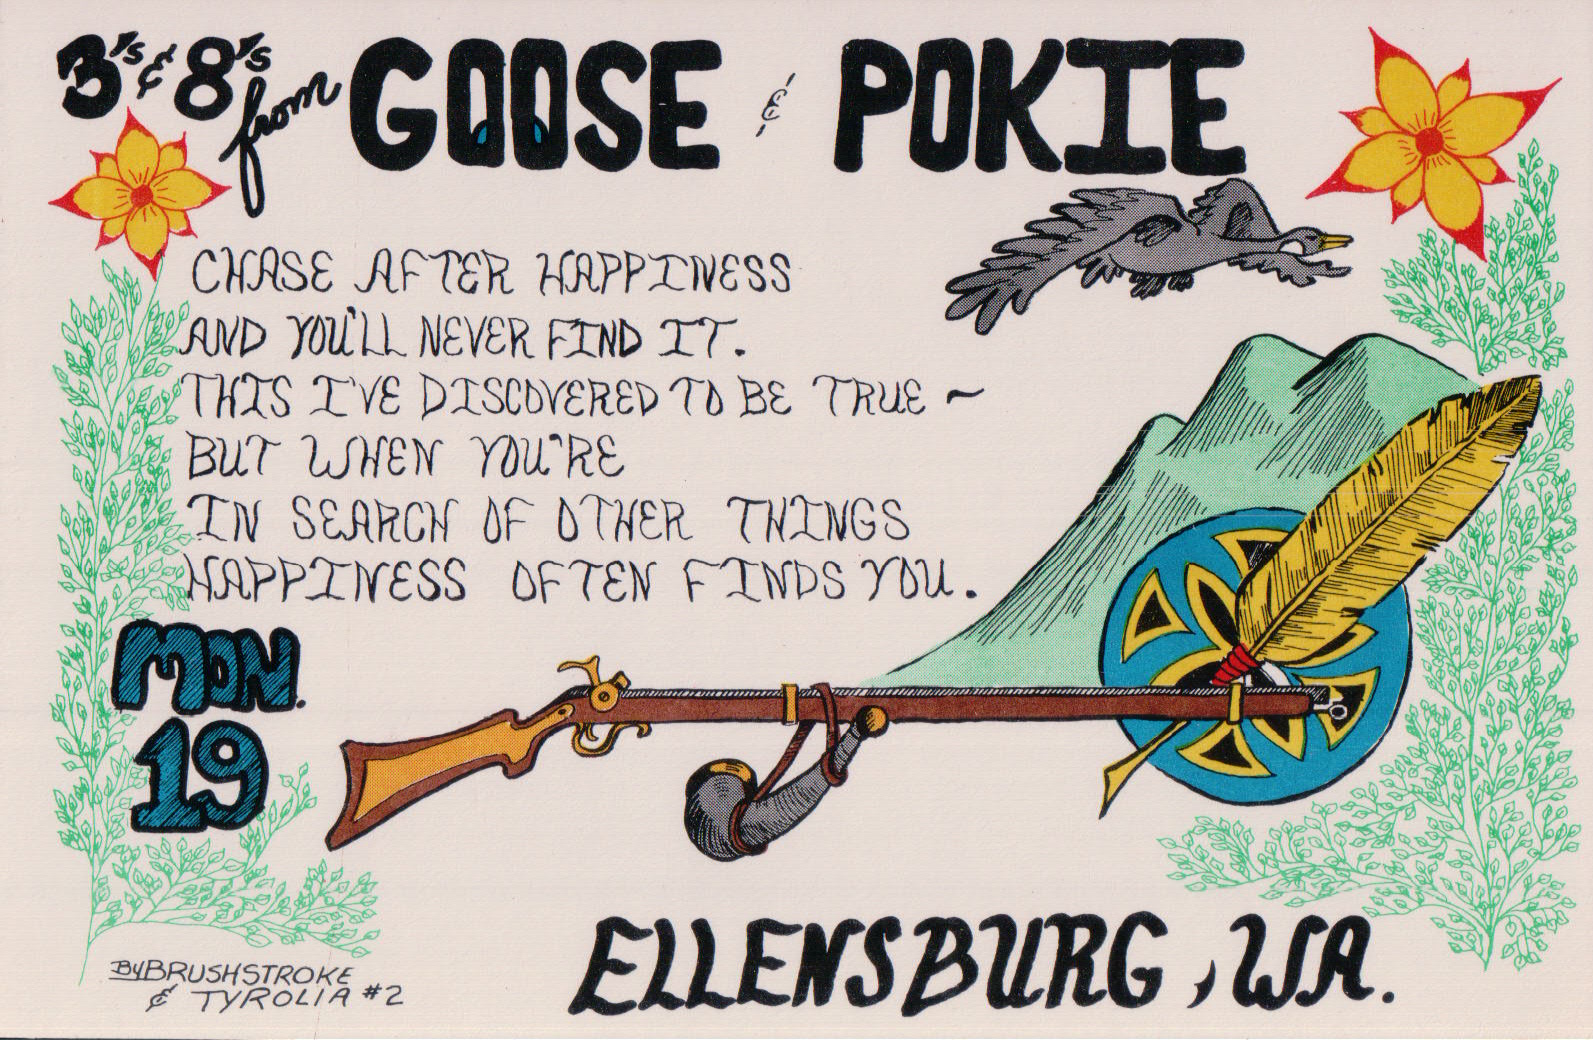 3's & 8's from GOOSE & POKIE
CHASE AFTER HAPPINESS
AND YOU'LL NEVER FIND IT.
THIS I'VE DISCOVERED TO BE TRUE ~
BUT WHEN YOU'RE
IN SEARCH OF OTHER THINGS
HAPPINESS OFTEN FINDS YOU.
MON.
19
By BRUSHSTROKE
& TYROLIA #2
ELLENSBURG, WA.